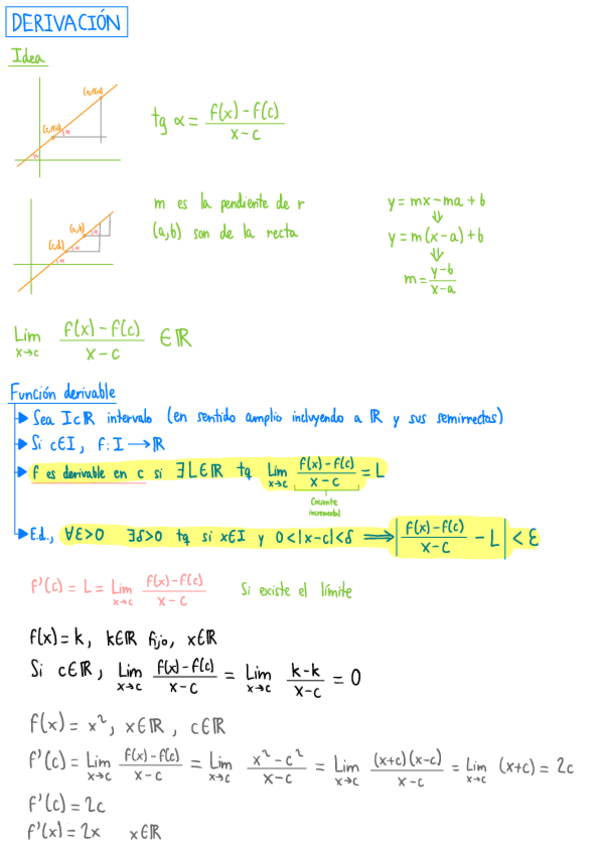 DERIVACIÓN
Idea
(x,f(x))
(c,f(c))
α
α
tg α = f(x) - f(c) / x - c
(a,b)
(c,d)
α
α
α
m es la pendiente de r
(a,b) son de la recta
y = mx - ma + b
⇓
y = m(x - a) + b
⇓
m = y - b / x - a
Lim x→c f(x) - f(c) / x - c ∈ ℝ
Función derivable
Sea I⊂ℝ intervalo (en sentido amplio incluyendo a ℝ y sus semirrectas)
Si c∈I, f: I → ℝ
f es derivable en c si ∃L∈ℝ tq Lim x→c f(x) - f(c) / x - c = L
Cociente
incremental
E.d., ∀ε>0 ∃δ>0 tq si x∈I y 0<|x-c|<δ ⟹ | f(x) - f(c) / x - c - L | < ε
f'(c) = L = Lim x→c f(x) - f(c) / x - c Si existe el límite
f(x) = k, k∈ℝ fijo, x∈ℝ
Si c∈ℝ, Lim x→c f(x) - f(c) / x - c = Lim x→c k - k / x - c = 0
f(x) = x², x∈ℝ, c∈ℝ
f'(c) = Lim x→c f(x) - f(c) / x - c = Lim x→c x² - c² / x - c = Lim x→c (x+c)(x-c) / x - c = Lim x→c (x+c) = 2c
f'(c) = 2c
f'(x) = 2x x∈ℝ